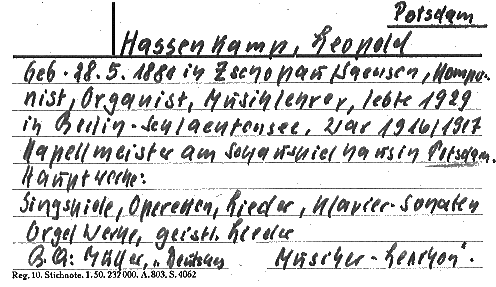 Potsdam
Hassenkamp, Leopold
Geb. 28.5.1881 in Zschopau/Sachsen, Kompo-
nist, Organist, Musiklehrer, lebte 1929
in Berlin-Schlachtensee, War 1916/1917
Kapellmeister am Schauspielhaus in Potsdam.
Hauptwerke:
Singspiele, Operetten, Lieder, Klavier-Sonaten
Orgel Werke, geistl. Lieder
B.Q: Müller, "Deutsches Musiker-Lexikon".
Reg. 10. Stichnote. 1. 50. 232 000. A. 803. S. 4062